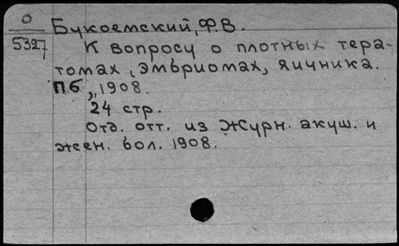 О
5327
Букоемский, Ф.В.
К вопросу о плотных тера-
томах, эмбриомах, яичника.
Пб., 1908.
24 стр.
Отд. отт. из Журн. акуш. и
жен. бол. 1908.